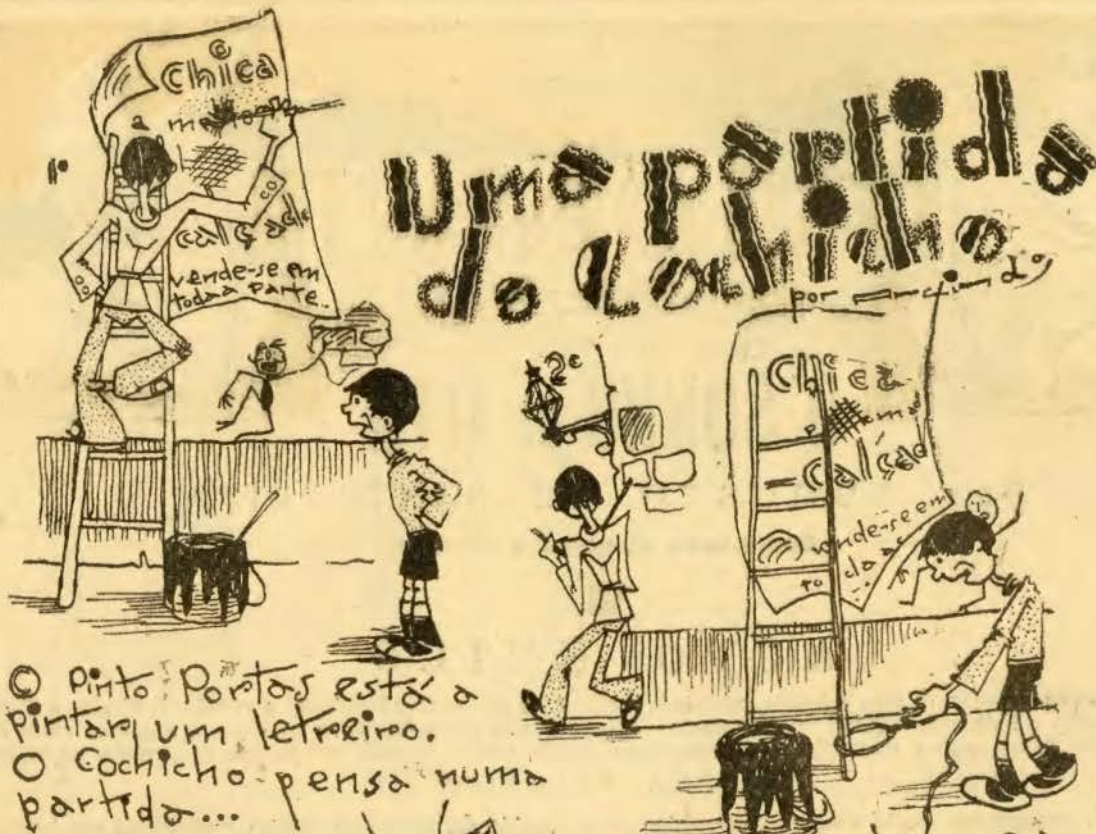 Uma partida
do Cochicho
por
1º
O
Chica
a
calçado
vende-se em
toda a parte..
2º
Chica
calçad
vende-se em
toda
O Pinto Portas está a
pintar um letreiro.
O Cochicho pensa numa
partida...